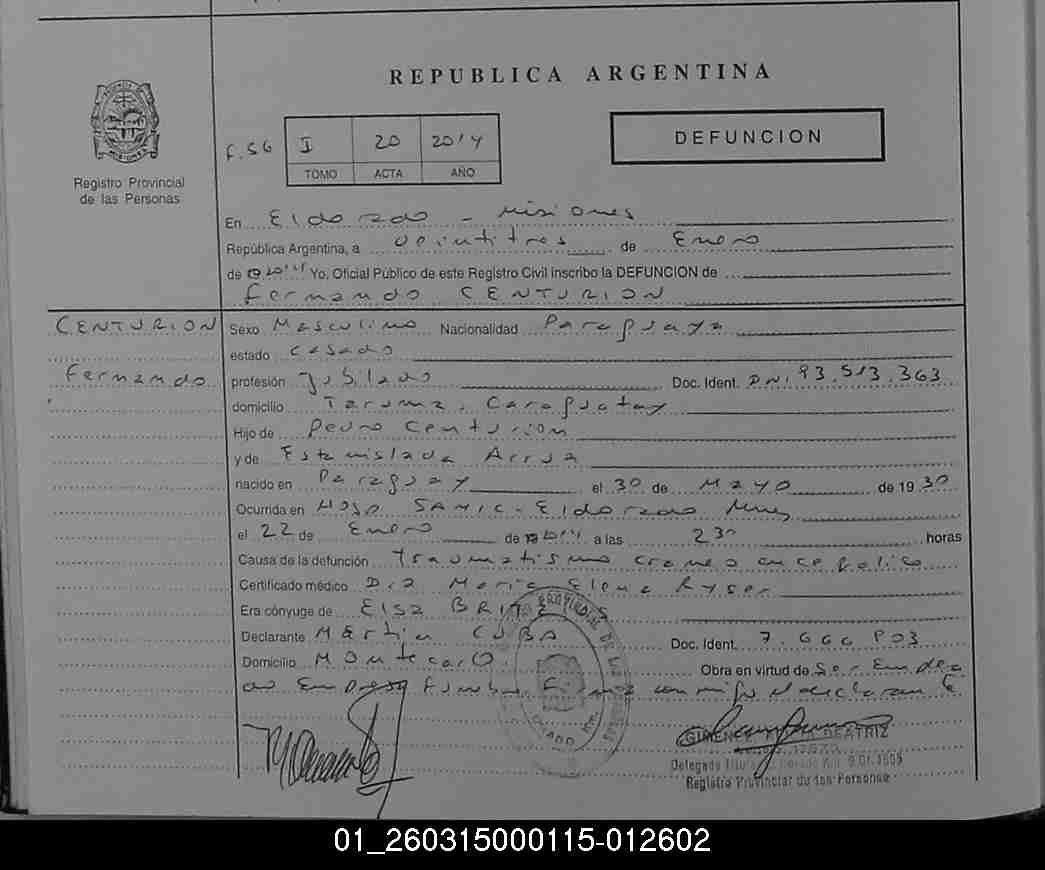 REPUBLICA ARGENTINA
Registro Provincial
de las Personas
F. 56
I 20 2014
TOMO ACTA AÑO
DEFUNCION
En Eldorado - Misiones
República Argentina, a veintitres de Enero
de 2014 Yo, Oficial Público de este Registro Civil inscribo la DEFUNCION de
Fernando CENTURION
CENTURION
Fernando
Sexo Masculino Nacionalidad Paraguaya
estado Casado
profesión Jubilado Doc. Ident. DNI 93.513.363
domicilio Taruma, Caraguatay
Hijo de Pedro Centurion
y de Estanislada Arrua
nacido en Paraguay el 30 de Mayo de 1930
Ocurrida en Hosp. SAMIC - Eldorado Mnes
el 22 de Enero de 2014 a las 230 horas
Causa de la defunción Traumatismo craneo encefalico
Certificado médico Dra Maria Elena Ryser
Era cónyuge de Elsa
Declarante Martin CUBA Doc. Ident. 7.666.803
Domicilio Montecarlo Obra en virtud de Ser Emplea
do Empresa Funebre. Firma conmigo el declarante.
BEATRIZ
Registro Provincial de las Personas
01_260315000115-012602